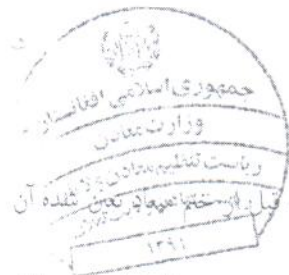 جمهوری اسلامی افغانستان
وزارت معادن
ریاست تنظیم معادن
قبل از ختم میعاد تعین شده آن
۱۳۹۱